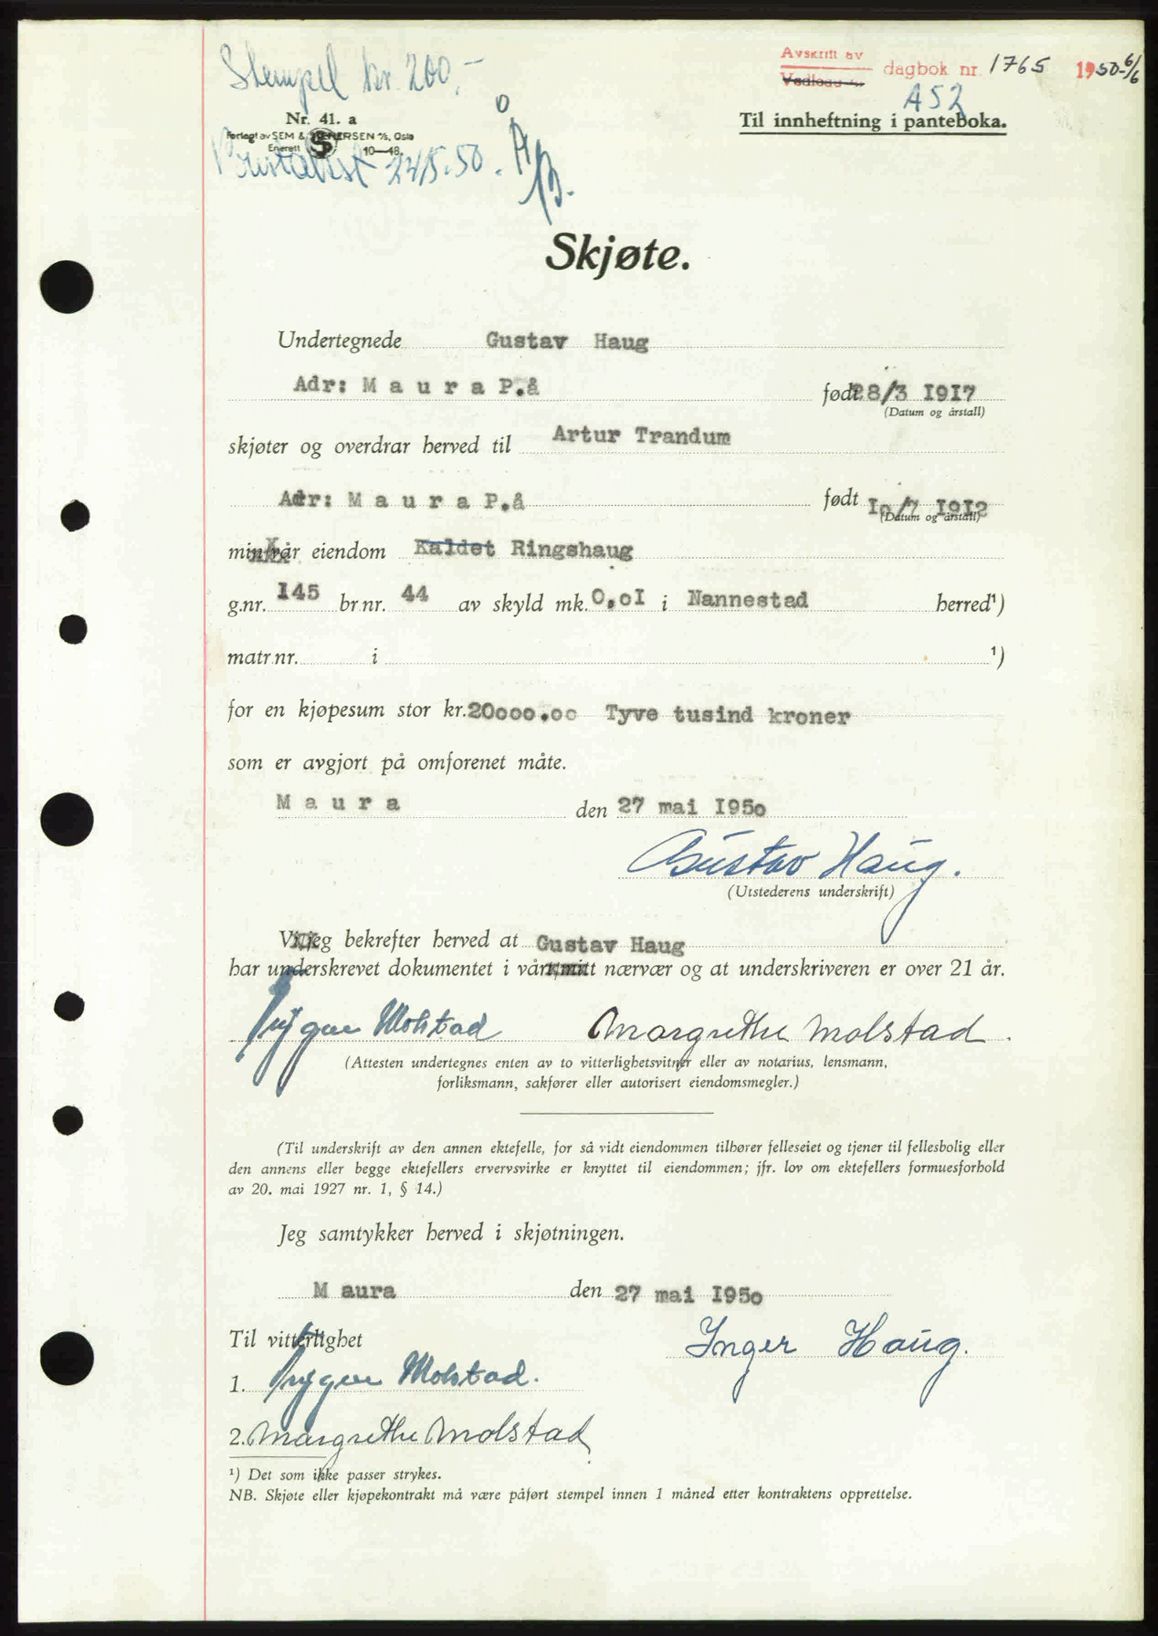 Stempel kr. 200.-
Avskrift av
Vedlegg nr.
dagbok nr. 1765 1950 - 6/6
A52
Nr. 41. a
Forlagt av SEM & STENERSEN A/S, Oslo
Enerett 10-48.
Til innheftning i panteboka.
24/5.50.
Skjøte.
Undertegnede Gustav Haug
Adr: M a u r a P.å født 28/3 1917
(Datum og årstall)
skjøter og overdrar herved til Artur Trandum
Adr: M a u r a P.å født 10/7 1912
(Datum og årstall)
min/vår eiendom Kaldet Ringshaug
g.nr. 145 br.nr. 44 av skyld mk. 0,01 i Nannestad herred¹)
matr.nr. i ¹)
for en kjøpesum stor kr. 20000.00 Tyve tusind kroner
som er avgjort på omforenet måte.
M a u r a den 27 mai 1950
Gustav Haug.
(Utstederens underskrift)
Vi/jeg bekrefter herved at Gustav Haug
har underskrevet dokumentet i vårt/mitt nærvær og at underskriveren er over 21 år.
Trygve Molstad Margrethe Molstad.
(Attesten undertegnes enten av to vitterlighetsvitner eller av notarius, lensmann,
forliksmann, sakfører eller autorisert eiendomsmegler.)
(Til underskrift av den annen ektefelle, for så vidt eiendommen tilhører felleseiet og tjener til fellesbolig eller
den annens eller begge ektefellers ervervsvirke er knyttet til eiendommen; jfr. lov om ektefellers formuesforhold
av 20. mai 1927 nr. 1, § 14.)
Jeg samtykker herved i skjøtningen.
M aura den 27 mai 1950
Til vitterlighet
Inger Haug.
1. Trygve Molstad.
2. Margrethe Molstad
¹) Det som ikke passer strykes.
NB. Skjøte eller kjøpekontrakt må være påført stempel innen 1 måned etter kontraktens opprettelse.